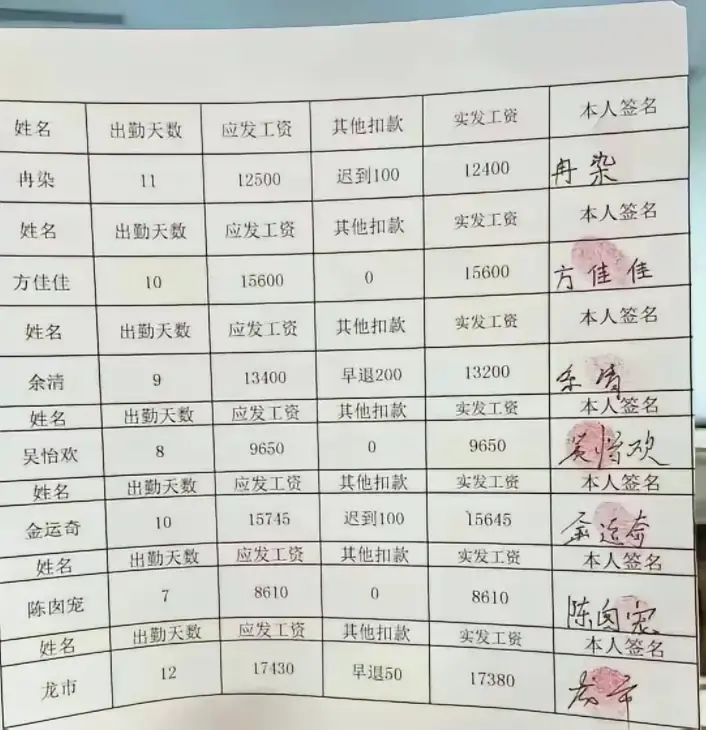 姓名 出勤天数 应发工资 其他扣款 实发工资 本人签名
冉染 11 12500 迟到100 12400 冉染
姓名 出勤天数 应发工资 其他扣款 实发工资 本人签名
方佳佳 10 15600 0 15600 方佳佳
姓名 出勤天数 应发工资 其他扣款 实发工资 本人签名
余清 9 13400 早退200 13200 余清
姓名 出勤天数 应发工资 其他扣款 实发工资 本人签名
吴怡欢 8 9650 0 9650 吴怡欢
姓名 出勤天数 应发工资 其他扣款 实发工资 本人签名
金运奇 10 15745 迟到100 15645 金运奇
姓名 出勤天数 应发工资 其他扣款 实发工资 本人签名
陈囱宠 7 8610 0 8610 陈囱宠
姓名 出勤天数 应发工资 其他扣款 实发工资 本人签名
龙市 12 17430 早退50 17380 龙市